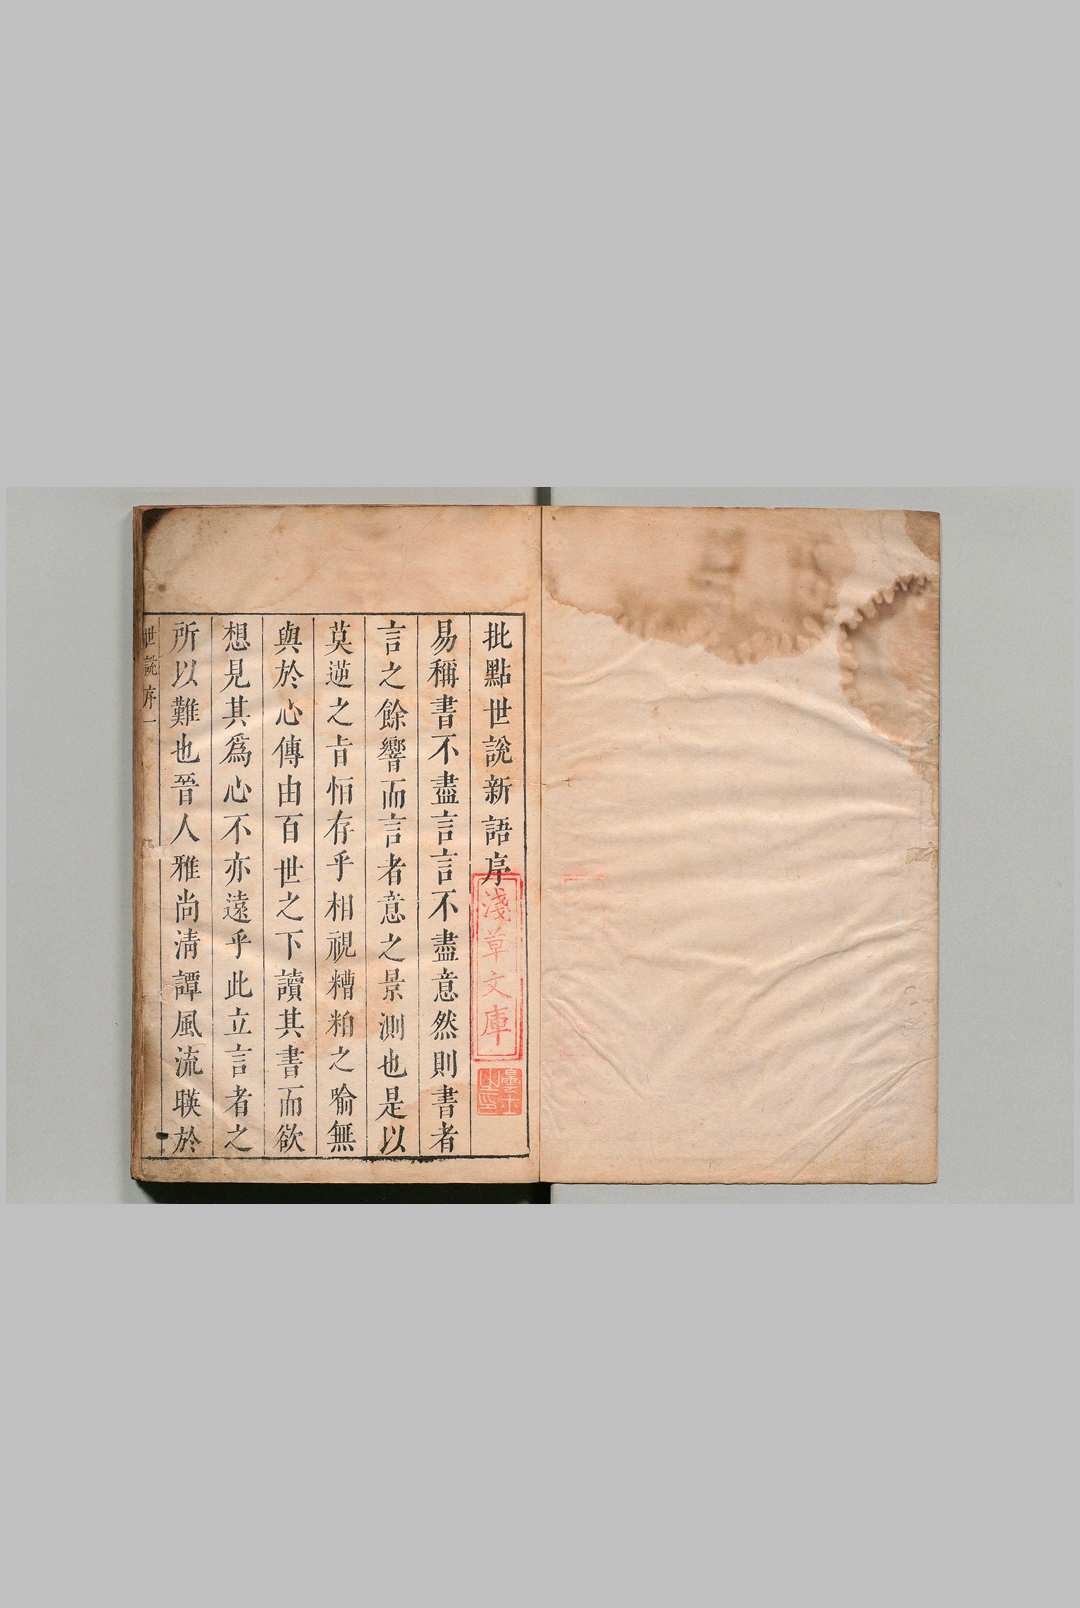 批點世說新語序
易稱書不盡言言不盡意然則書者
言之餘響而言者意之景測也是以
莫逆之旨恒存乎相視糟粕之喻無
與於心傳由百世之下讀其書而欲
想見其爲心不亦遠乎此立言者之
所以難也晉人雅尚清譚風流暎於
世說序一
淺草文庫